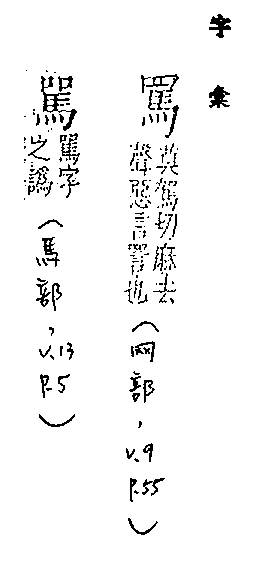 字彙
罵 莫駕切麻去
聲惡言詈也
(网部, v.9 p.55)
駡 罵字
之譌
(馬部, v.13 p.5)